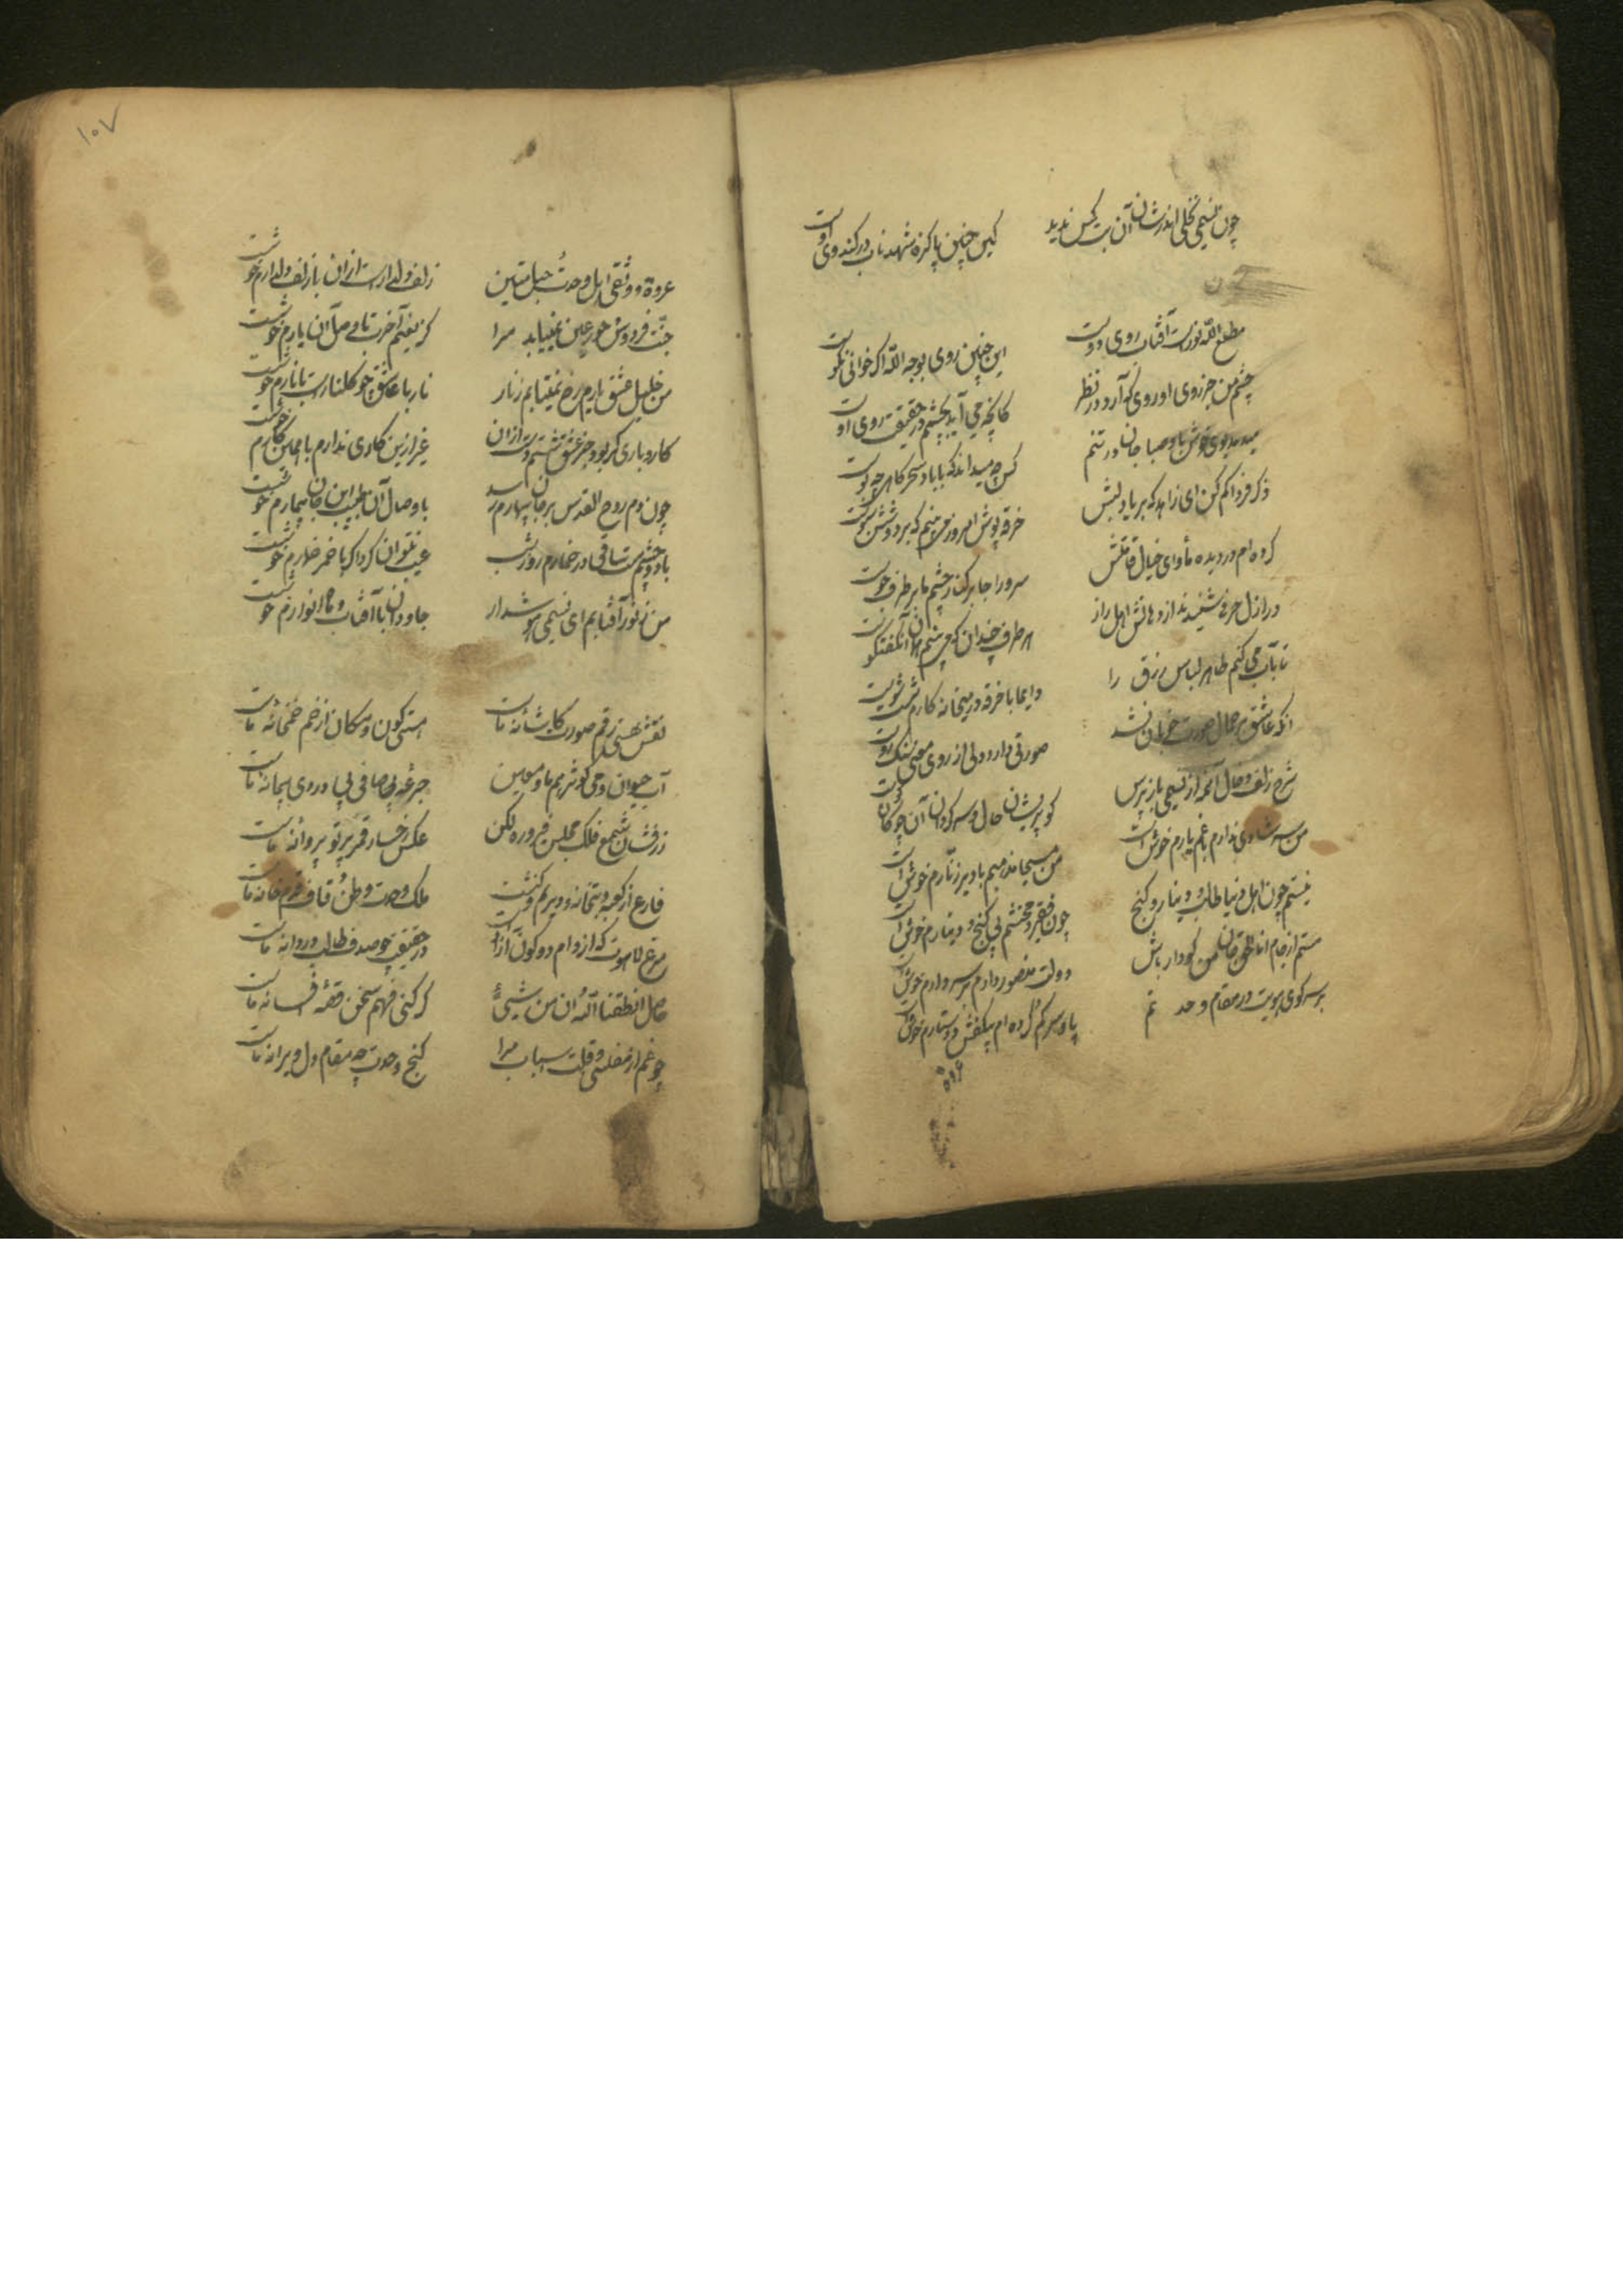 چون نسیمی نخلی اندر شان آن بت کس ندید کس چنین پاکیزه شهد ناب در کندوی اوست
مطلع الله نورست آفتاب روی دوست این چنین روی بوجه الله اگر خوانی نکوست
چشم من جز روی او روی که آرد در نظر کانچه می آید بچشمم در حقیقت روی اوست
میدهد بوی خوش باد صبا جان در تنم کس چه میداند که با باد سحرگاهی چه بوست
ذکر فردا کم کن ای زاهد که بر یاد لبش خرقه پوش امروز می بینم که بر دوشش سبوست
کرده ام در دیده مأوای خیال قامتش سرو را جا بر کنار چشم ما بر طرف جوست
در ازل حرفی شنیدند از دهانش اهل راز هر طرف چندان که می بینم همان گفتگوست
تا بآب می کنم طاهر لباس رزق را دایما با خرقه در میخانه کارم شست و شوست
آنکه عاشق بر جمال صورت خوبان نشد صورتی دارد ولی از روی معنی سنگ و روست
شرح زلف و خال از نسیمی باز پرس کو پریشان حال و سرگردان آن چوگان و گوست
من سر شادی ندارم با غم یارم خوش است من مسیحا مذهبم با دیر و زنارم خوش است
نیستم چون اهل دنیا طالب دینار و گنج چون فقیر و محتشم بی گنج و دینارم خوش است
مستم از جام انا الحق جان من گو دار باش دولت منصور دارم بر سر دارم خوش است
بر سر کوی هویت در مقام وحدتم پا و سر گم کرده ام بی کفش و دستارم خوش است
عروة
۱۰۷
عروة و وثقی اهل وحدت حبل متین زلف دلدارست از آن با زلف دلدارم خوشست
جنت فردوس حور عین نمیباید مرا کز نعیم آخرت با وصل آن یارم خوشست
من خلیل عشق یارم رخ نمیتابم ز نار نار با عاشق چو گلنارست با نارم خوشست
کار و باری کر بود جز عشق شستم دست از آن غیر ازین کاری ندارم با همین کارم خوشست
چون دم روح القدس بر جان بیمارم رسد با وصال آن طبیب این جان بیمارم خوشست
با دو چشم مست ساقی در خمارم روز و شب عیب نتوان کرد اگر با خمر خمارم خوشست
من ز نور آفتابم ای نسیمی هوشدار جاودان با آفتاب و ماه انوارم خوشست
نقش هستی رقم صورت کاشانه ماست مستی کون و مکان از خم خمخانه ماست
آب حیوان و می کوثر هم ماء معین جرعه بی صافی بی دردی پیمانه ماست
زرفشان شمع فلک مجلس فیروزه لگن عکس رخسار قمر پرتو پروانه ماست
فارغ از کعبه و بتخانه و دیریم و کنشت ملک وحدت وطن و قاف قدم خانه ماست
مرغ لاهوت که از دام دو کون آزادست در حقیقت چو صدف طالب دردانه ماست
حاصل انطقنا الله ان من شیئ گر کنی فهم سخن قصه و افسانه ماست
چه غم از مفلسی و قلت اسباب مرا گنج وحدت چه مقام دل ویرانه ماست